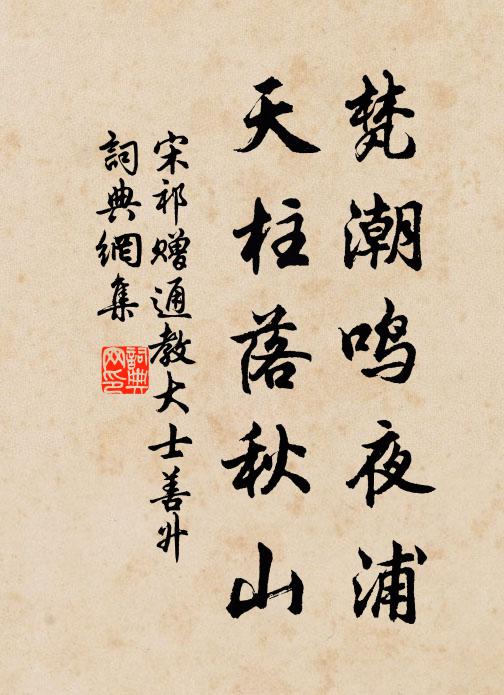 梵潮鸣夜浦
天柱落秋山
宋祁赠通教大士善升
詞典網集
詞典网印